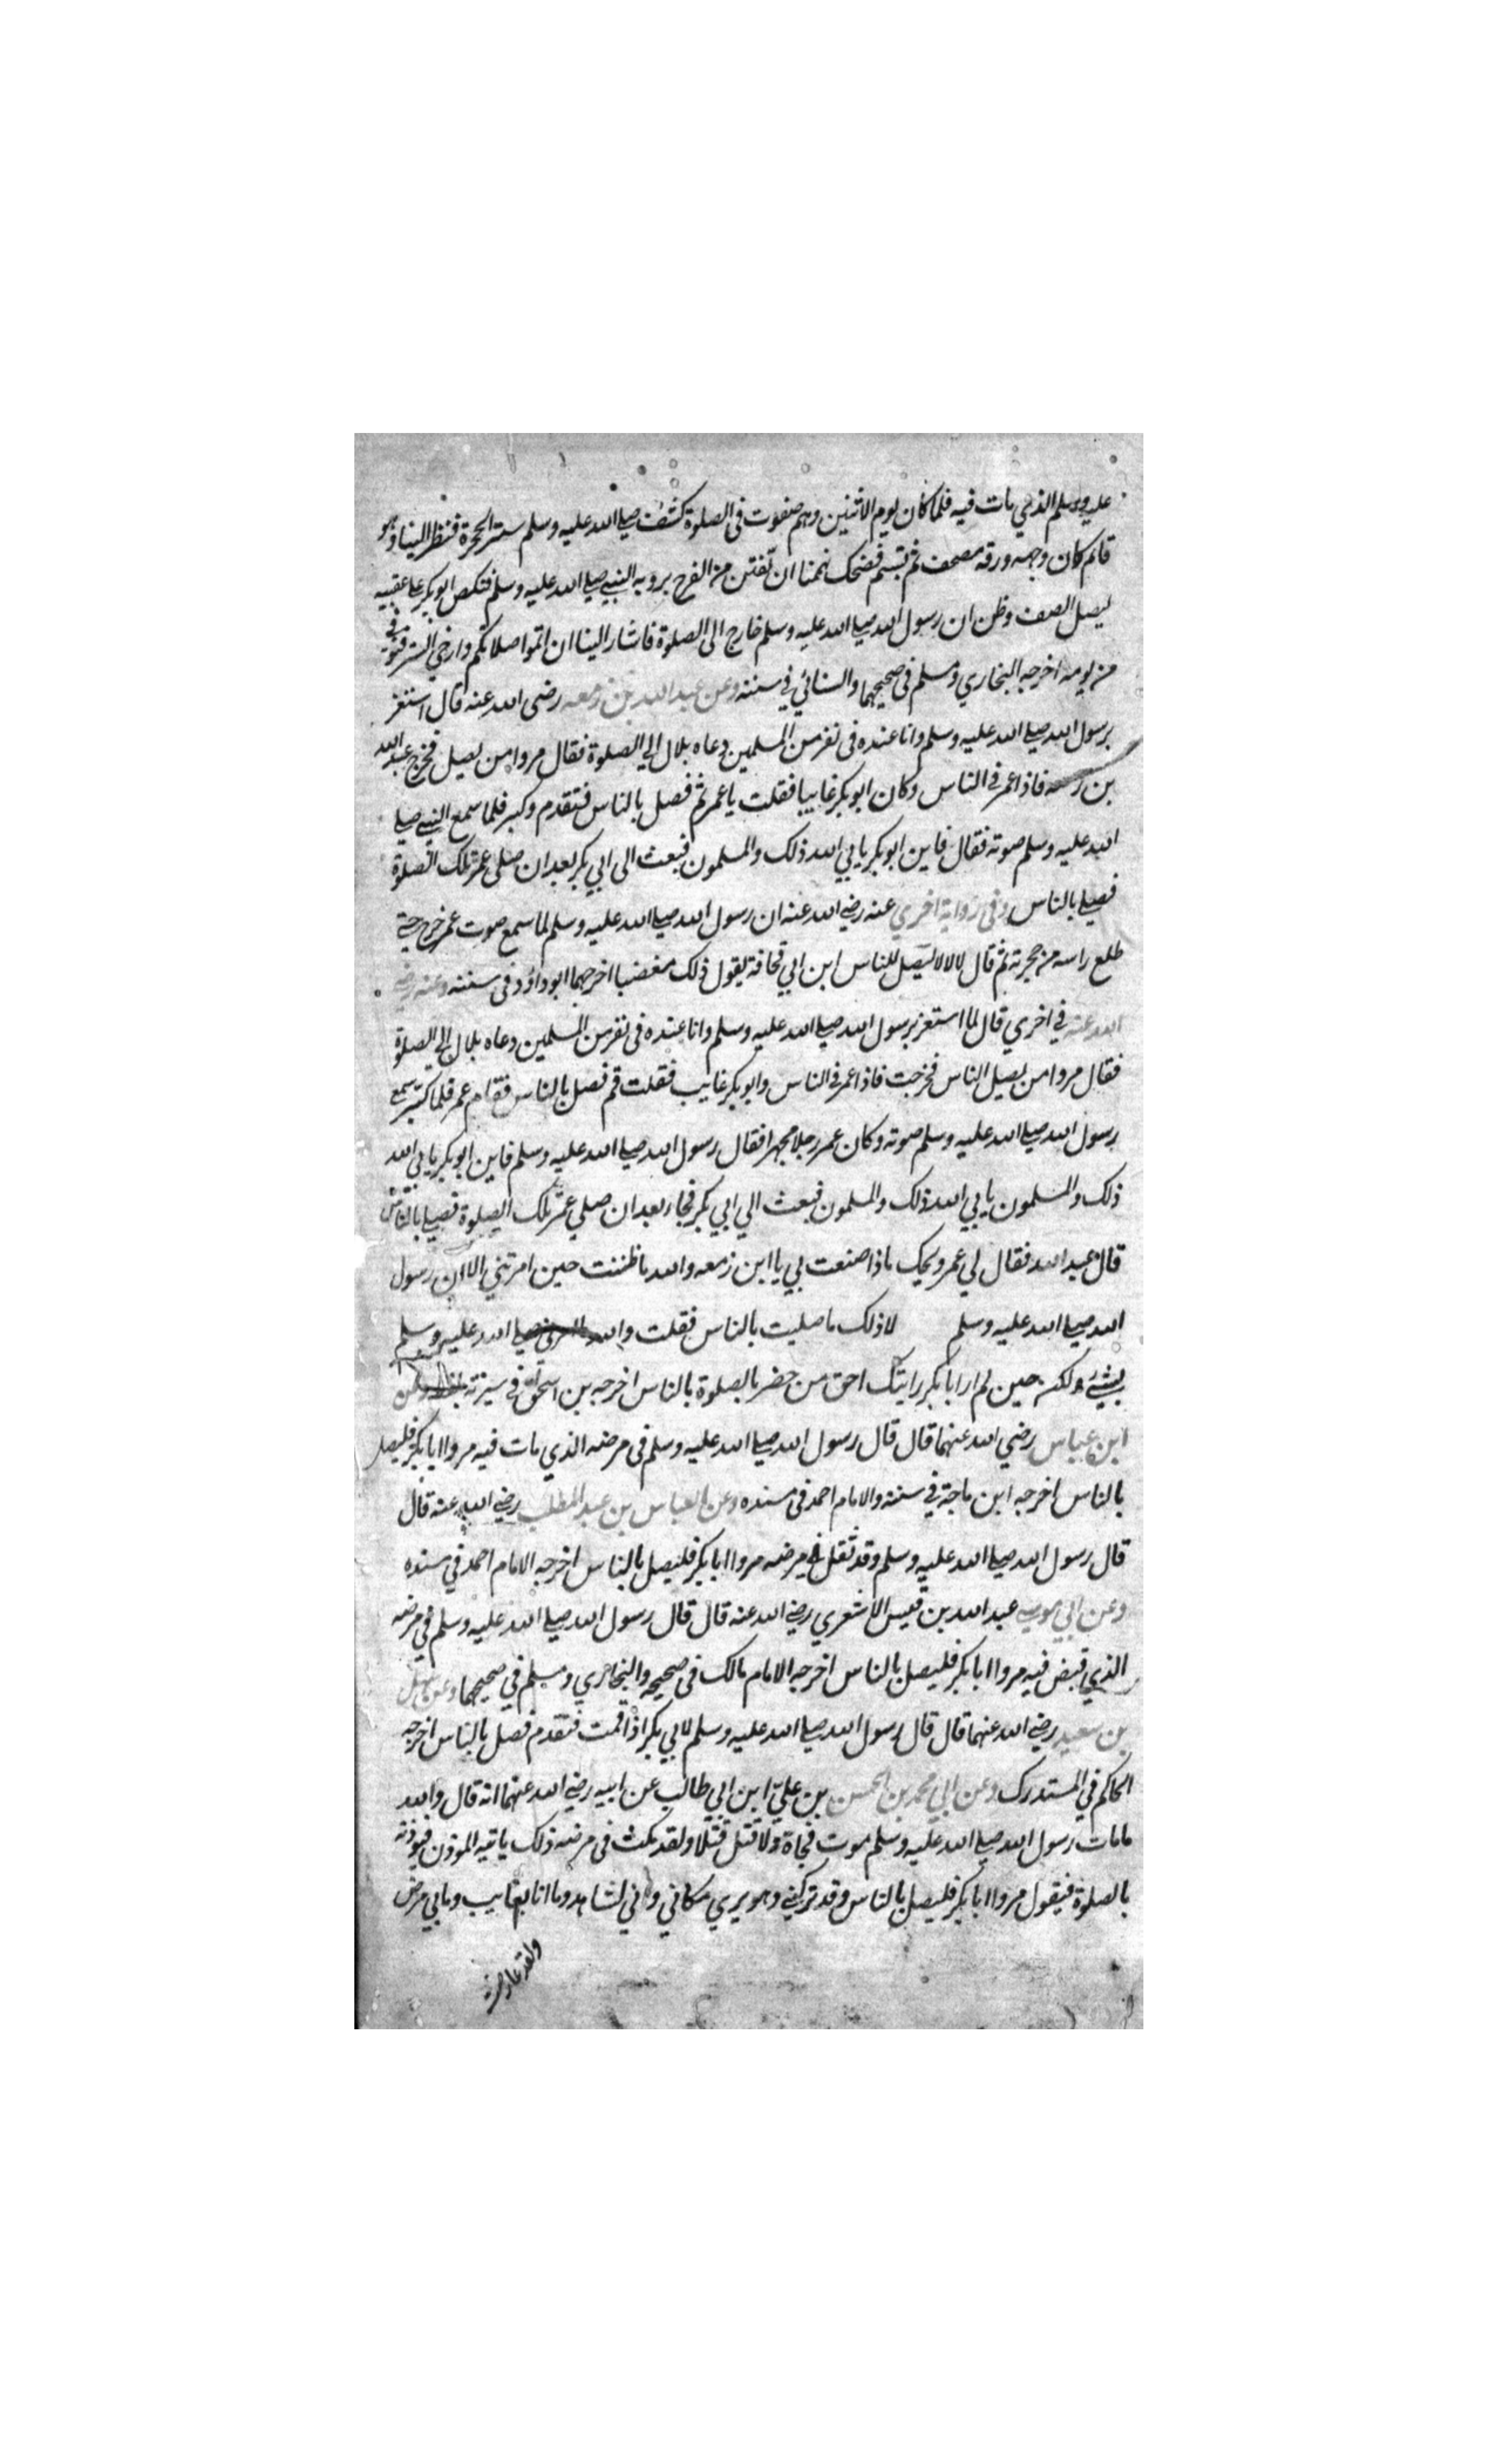 عليه وسلم الذي مات فيه فلما كان يوم الاثنين وهم صفوف في الصلوة كشف صلي الله عليه وسلم ستر الحجرة فنظر الينا وهو
قائم كان وجهه ورقه مصحف ثم تبسم فضحك نهمنا ان تفتن من الفرح بروية النبي صلي الله عليه وسلم فنكص ابو بكر علي عقبيه
ليصل الصف وظن ان رسول الله صلي الله عليه وسلم خارج الى الصلوة فاشار الينا ان اتموا صلاتكم وارخي الستر فتوفي
من يومه اخرجه البخاري ومسلم في صحيحهما والنسائي في سننه وعن عبد الله بن زمعه رضى الله عنه قال استعز
برسول الله صلي الله عليه وسلم وانا عنده في نفر من المسلمين دعاه بلال الي الصلوة فقال مروا من يصل فخرج عبد الله
بن زمعه فاذا عمر في الناس وكان ابو بكر غايبا فقلت يا عمر قم فصل بالناس فتقدم وكبر فلما سمع النبي صلي
الله عليه وسلم صوته فقال فاين ابو بكر يابي الله ذلك والمسلمون فبعث الى ابي بكر بعد ان صلى عمر تلك الصلوة
فصلي بالناس وفي رواية اخري عنه رضي الله عنه ان رسول الله صلي الله عليه وسلم لما سمع صوت عمر خرج حتي
طلع راسه من حجرته ثم قال لا لا لا ليصل للناس ابن ابي قحافة يقول ذلك مغضبا اخرجهما ابو داود في سننه وعنه رضي
الله عنه في اخري قال لما استعز برسول الله صلي الله عليه وسلم وانا عنده في نفر من المسلمين دعاه بلال الي الصلوة
فقال مروا من يصل الناس فخرجت فاذا عمر في الناس وابو بكر غايب فقلت قم فصل بالناس فقام عمر فلما كبر سمع
رسول الله صلي الله عليه وسلم صوته وكان عمر رجلا مجهرا فقال رسول الله صلي الله عليه وسلم فاين ابو بكر يابي الله
ذلك والمسلمون يابي الله ذلك والمسلمون فبعث الي ابي بكر فجاء بعد ان صلي عمر تلك الصلوة فصلي بالناس
قال عبد الله فقال لي عمر ويحك ماذا صنعت بي يا ابن زمعه والله ما ظننت حين امرتني الا ان رسول
الله صلي الله عليه وسلم لا ذلك ما صليت بالناس فقلت والله صلي الله عليه وسلم
بشئ ولكن حين لم ار ابا بكر رايتك احق من حضر بالصلوة بالناس اخرجه بن اسحق في سيرته وعن
ابن عباس رضي الله عنهما قال قال رسول الله صلي الله عليه وسلم في مرضه الذي مات فيه مروا ابا بكر فليصل
بالناس اخرجه ابن ماجة في سننه والامام احمد في مسنده وعن العباس بن عبد المطلب رضي الله عنه قال
قال رسول الله صلي الله عليه وسلم وقد ثقل في مرضه مروا ابا بكر فليصل بالناس اخرجه الامام احمد في مسنده
وعن ابي موسي عبد الله بن قيس الاشعري رضي الله عنه قال قال رسول الله صلي الله عليه وسلم في مرضه
الذي قبض فيه مروا ابا بكر فليصل بالناس اخرجه الامام مالك في صحيحه والبخاري ومسلم في صحيحهما وعن سهل
بن سعيد رضي الله عنهما قال قال رسول الله صلي الله عليه وسلم لابي بكر اذا قمت فتقدم فصل بالناس اخرجه
الحاكم في المستدرك وعن ابي محمد بن الحسن بن علي ابن ابي طالب عن ابيه رضي الله عنهما انه قال والله
ما مات رسول الله صلي الله عليه وسلم موت فجاة ولا قتل قتلا ولقد مكث في مرضه ذلك ياتيه الموذن فيوذنه
بالصلوة فيقول مروا ابا بكر فليصل بالناس وقد تركني وهو يري مكاني واني لشاهد وما انا بغايب وما بي مرض